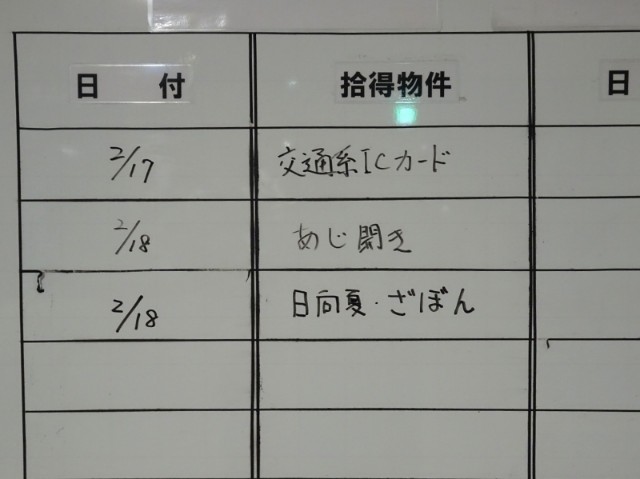 日 付 拾得物件 日
2/17 交通系ICカード
2/18 あじ開き
2/18 日向夏・ざぼん